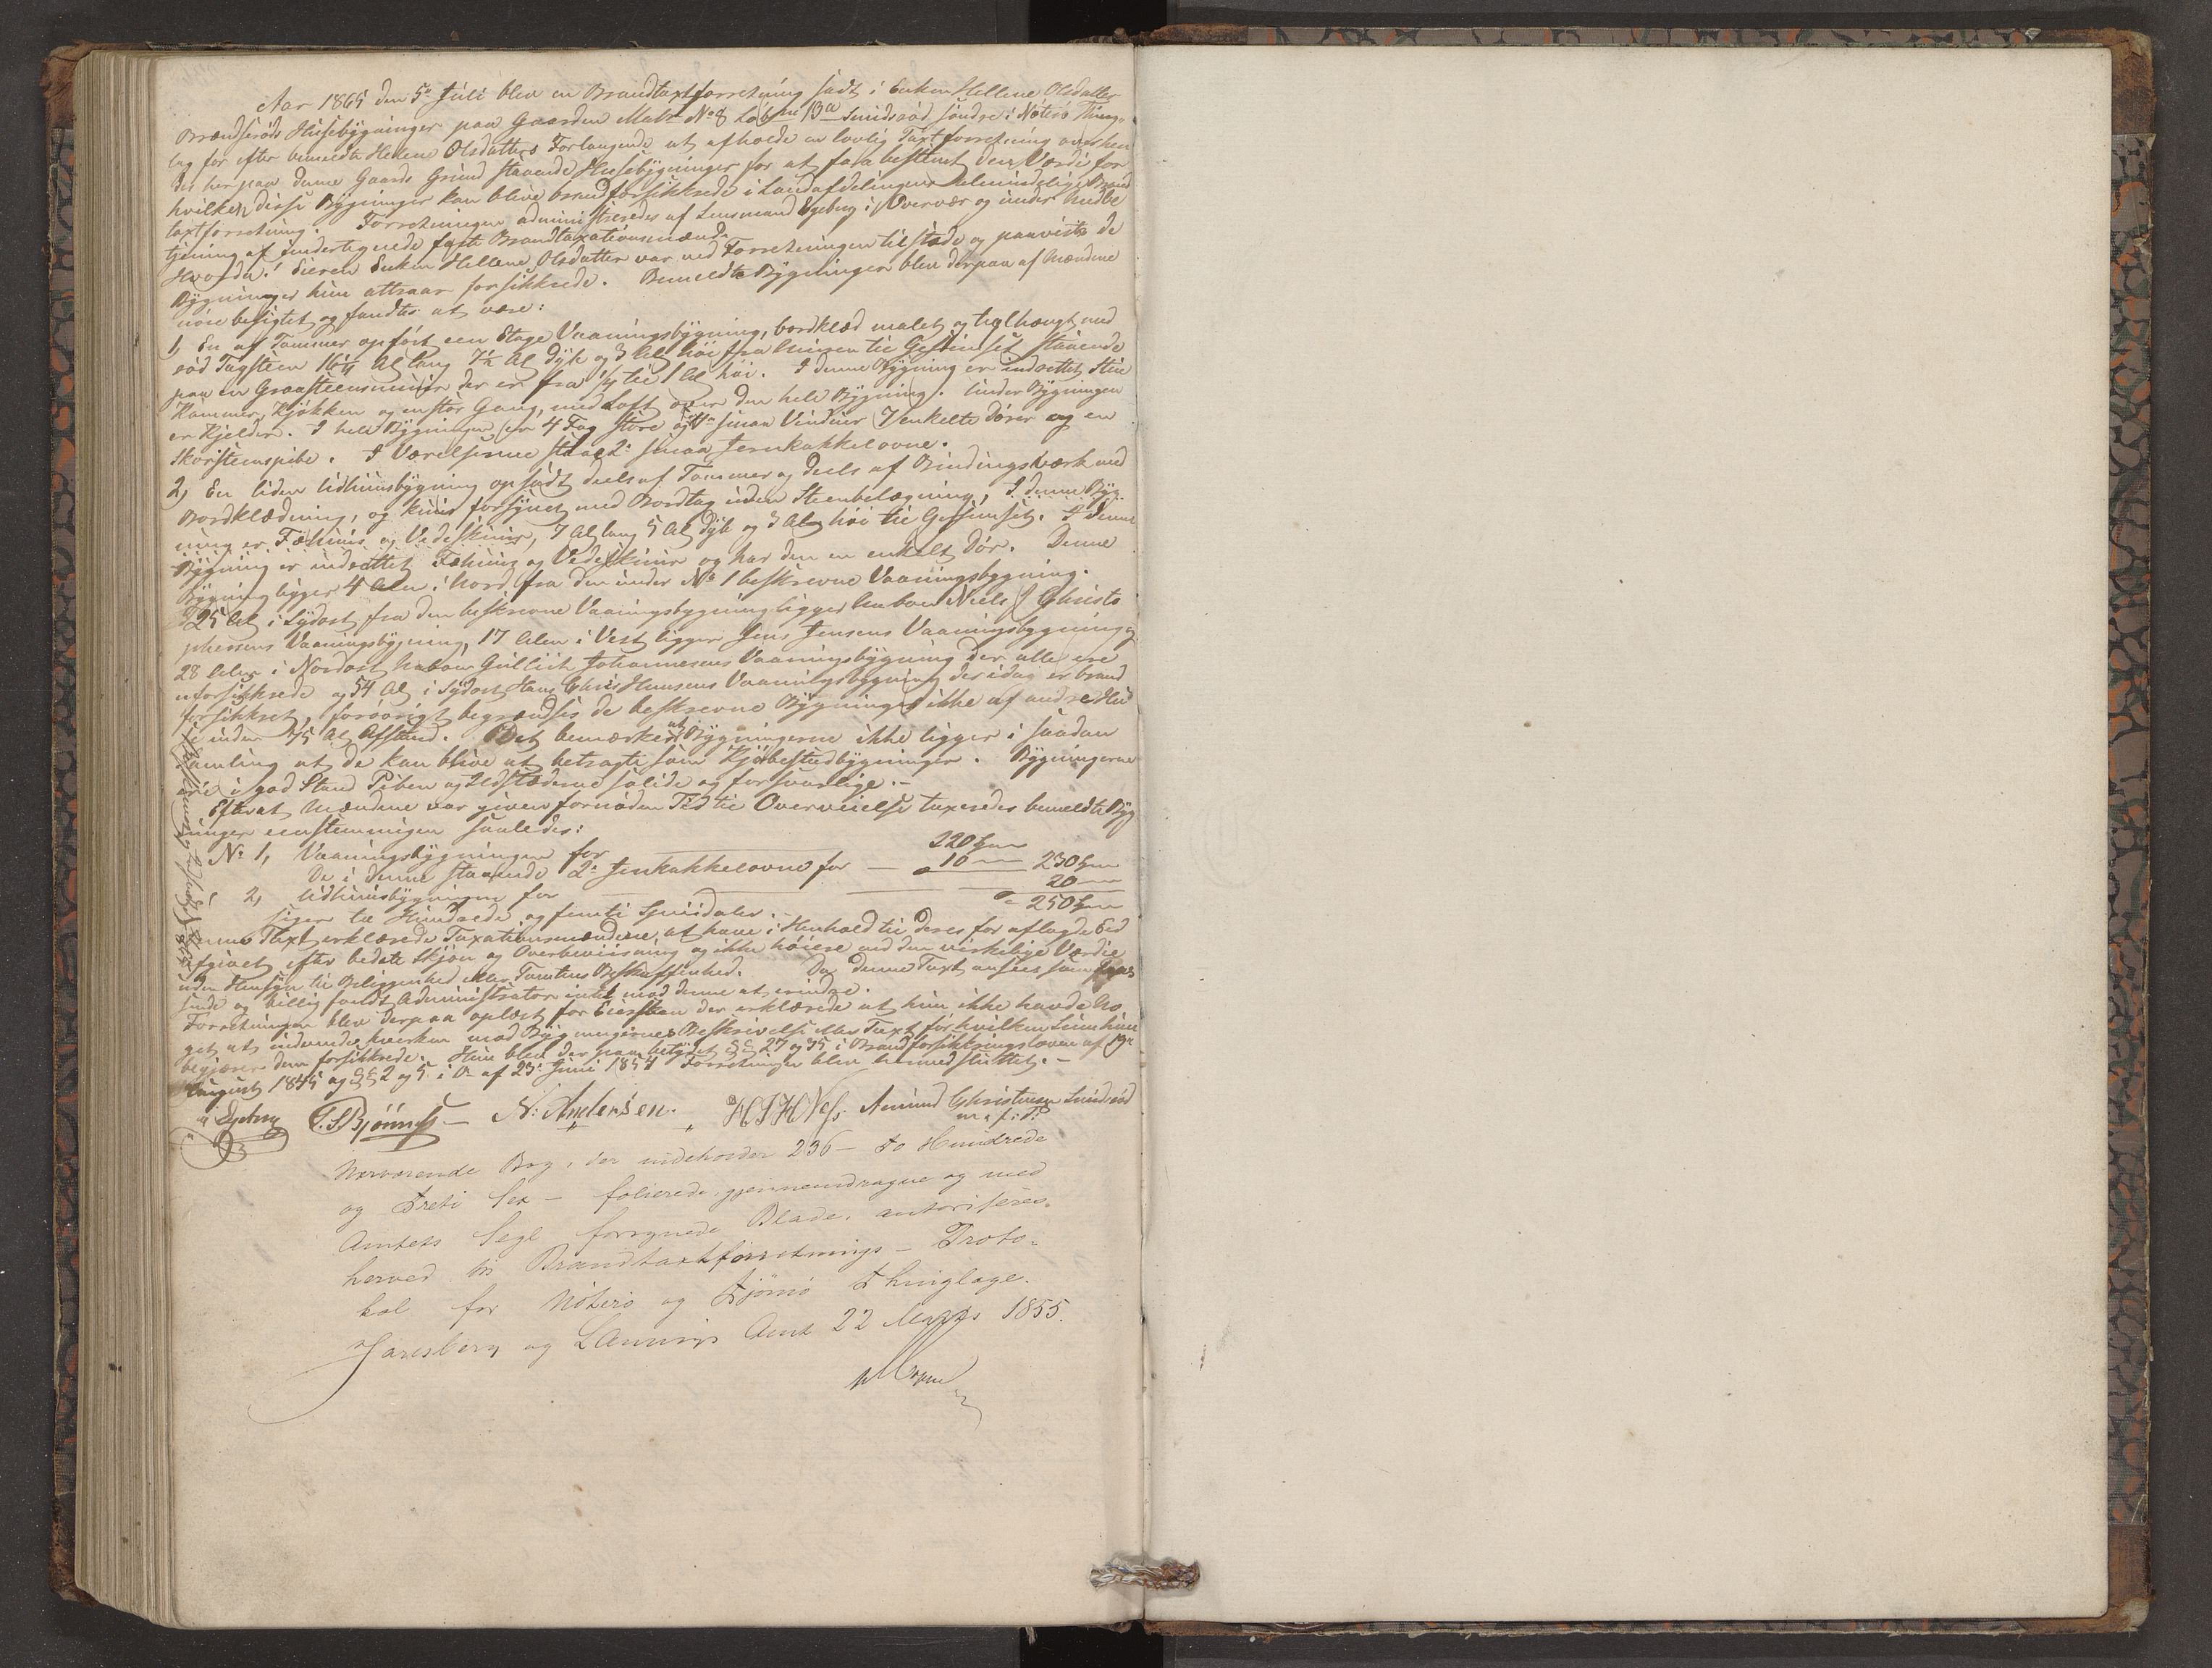 Aar 1865 den 5te Juli blev en Brandtaxtforretning sadt i Enken Hellene Olsdatter
Brændserøds Husebygninger paa Gaarden Matr No 8 Løbene 13a Smidsrød søndre i Nøterø Thing-
lag for efter bemeldte Hellene Olsdatters Forlangende at afholde en lovlig Taxtforretning over hen
des her paa denne Gaards Grund staaende Husebygninger for at faa bestemt den Værdi for
hvilken disse Bygninger kan blive brandforsikkrede i Landafdelingens almindelige Brand
taxtforretning. Forretningen administreredes af Lensmand Egeberg i Overvær og under Medbe
tjening af undertegnede faste Brandtaxationsmænd.
Hvorda! Eieren Enken Hellene Olsdatter var ved Forretningen tilstæde og paaviste de
Bygninger hun attraar forsikkrede. Bemeldte Bygninger blev derpaa af Mændene
nøie besigtet og fandtes at være:
1, En af Tømmer opført een Etage Vaaningsbygning, bordklæd malet og tagthængt med
rød Tagsteen 16¼ Al lang 7½ Al dyb og 3 Al høi fra Muren til Gesimset staaende
paa en Graasteensmuur der er fra ½ til 1 Al høi. I denne Bygning er indrettet Stue
Kammer, Kjøkken og en stor Gang, med Loft over den hele Bygning. Under Bygningen
er Kjelder. I hele Bygningen er 4 Fag store og smaa Vinduer 7 enkelte Dører og en
Skorsteenspibe. I Værelserne staae 2 smaa Jernkakkelovne.
2, En liden Udhuusbygning opsadt deels af Tømmer og deels af Bindingsværk med
Bordklædning, og kuns forsynet med Bordtag uden Steenbelægning, I denne Byg
ning er Fæhuus og Vedeskuur, 7 Al lang 5 Al dyb og 3 Aln høi til Gesimset. I denne
Bygning er indrettet Fæhuus og Vedeskuur og har den en enkelt Dør. Denne
Bygning ligger 4 Alen i Nord fra den under No 1 beskrevne Vaaningsbygning.
25 Al i Sydost fra den beskrevne Vaaningsbygning ligger Naboen Niels J Christo
phersens Vaaningsbygning, 17 Alen i Vest ligger Jens Jensens Vaaningsbygning og
28 Alen i Nordost Naboen Gulliik Johannesens Vaaningsbygning der alle ere
uforsikkrede og 54 Al i Sydost Hans Chris Hansens Vaaningsbygning der idag er brand
forsikkret, forøvrigt begrændses de beskrevne Bygninger ikke af andre Hu
se inden 75 Al Afstand. Det bemærkes at Bygningerne ikke ligger i saadan
Samling at de kan blive at betragte som Kjøbstedbygninger. Bygningerne
ere i god Stand Piben og Ildstæderne solide og forsvarlige.-
Efterat Mændene var given fornøden Tid til Overveielse taxeredes bemeldte Byg
ninger eenstemmigen saaledes:
No 1, Vaaningsbygningen for 220
De i denne staaende 2 Jernkakkelovne for 10 230
2, Udhuusbygningen for 20
250
siger to Hundrede og femti Speciedaler.
Denne Taxt erklærede Taxationsmændene, at have i Henhold til deres før aflagde Eed
afgivet efter bedste Skjøn og Overbeviisning og ikke høiere end den virkelige Værdie
uden Hensyn til Beliggenhed eller Tomtens Beskaffenhed. Da denne Taxt ansees som
og billig fandt Administrator intet mod denne at erindre.
Forretningen blev derpaa oplæst for Eiersken der erklærede at hun ikke havde No
get at indvende hverken mod Bygningernes Beskrivelse eller Taxt for hvilken Sum hun
begjærer dem forsikkrede. Hun blev derpaa betydet §§ 27 og 35 i Brandforsikkringsloven af 19de
August 1845 og §§ 2 og 5 i L af 23 Juni 1854 Forretningen blev hermed sluttet.-
Egeberg N: Andersen. Amund Christensen Smidsrød
m. f. P.
Nærværende Bog, der indeholder 236 - to Hundrede
og Treti Sex - folierede, gjennemdragne og med
Amtets Segl forsynede Blade, autoriseres
herved til Brandtaxtforretnings - Proto-
kol for Nøterø og Tjømø Thinglage.
Jarlsberg og Laurvigs Amt 22 Marts 1855.